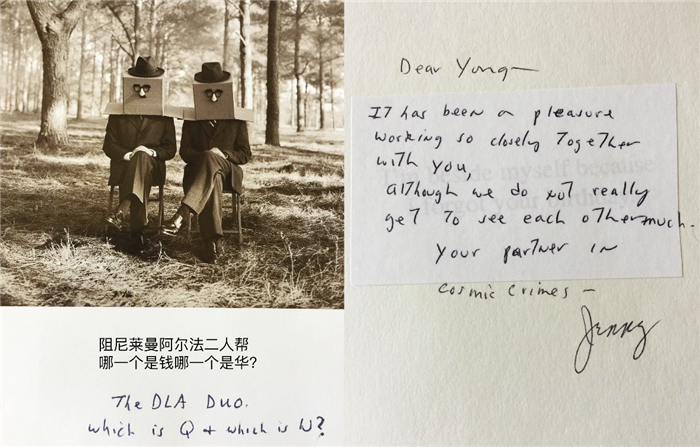 阻尼莱曼阿尔法二人帮
哪一个是钱哪一个是华?
The DLA Duo.
which is Q + which is W?
Dear Yong—
It has been a pleasure
working so closely together
with you,
although we do not really
get to see each other much.
Your partner in
cosmic crimes —
Jenny
myself because
forgot your birthday